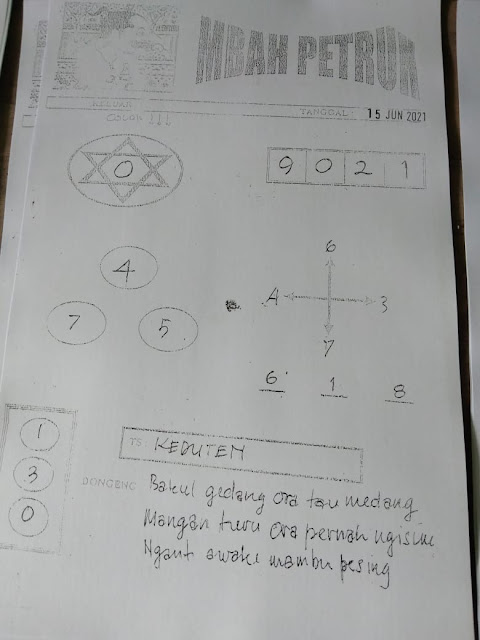 MBAH PETRUK
KELUAR
TANGGAL : 15 JUN 2021
COLOK
0
9 0 2 1
4
7 5
6
A 3
7
6 1 8
1
3
0
TS: KEDUTEN
DONGENG
Bakul gedang ora tau medang
Mangan turu ora pernah ngising
Ngant awake mambu pesing